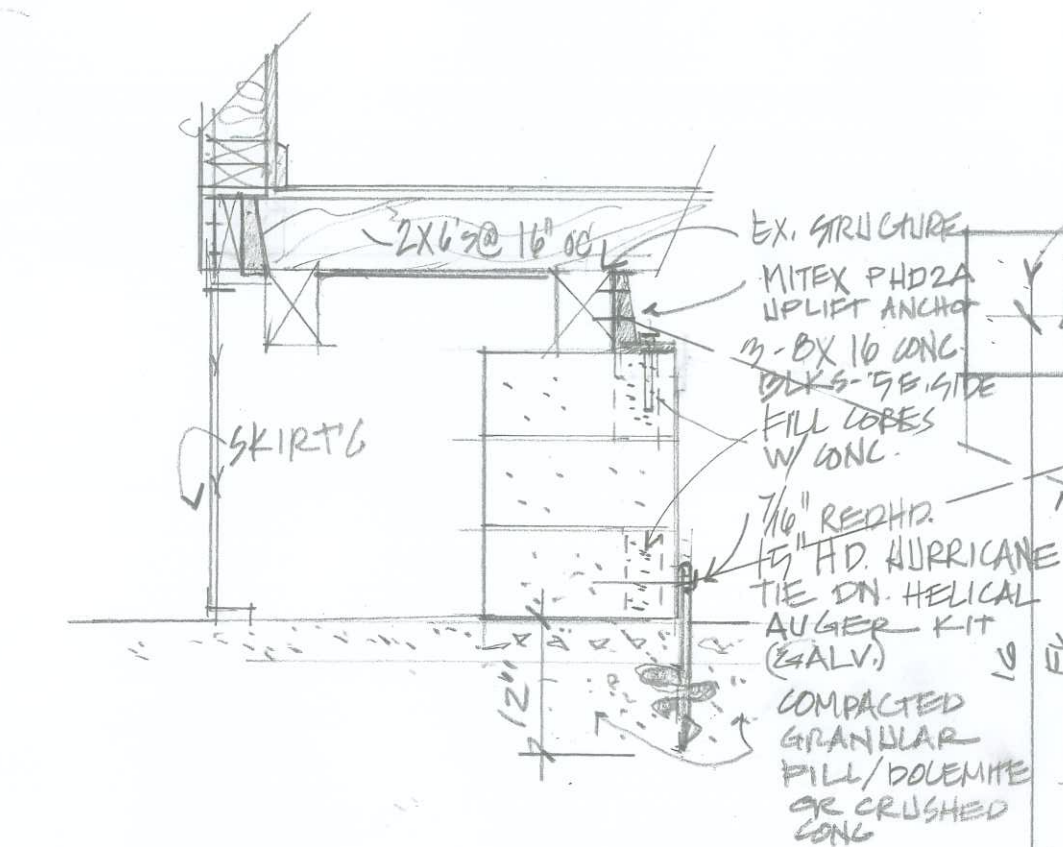 2X6's@ 16" OC
EX. STRUCTURE
MITEX PHD2A
UPLIFT ANCHO
3-8X16 CONC.
BLKS-5 E. SIDE
FILL CORES
W/ CONC.
SKIRT'G
7/16" REDHD.
15" HD. HURRICANE
TIE DN. HELICAL
AUGER KIT
(GALV.)
12"
COMPACTED
GRANULAR
FILL/DOLEMITE
OR CRUSHED
CONC